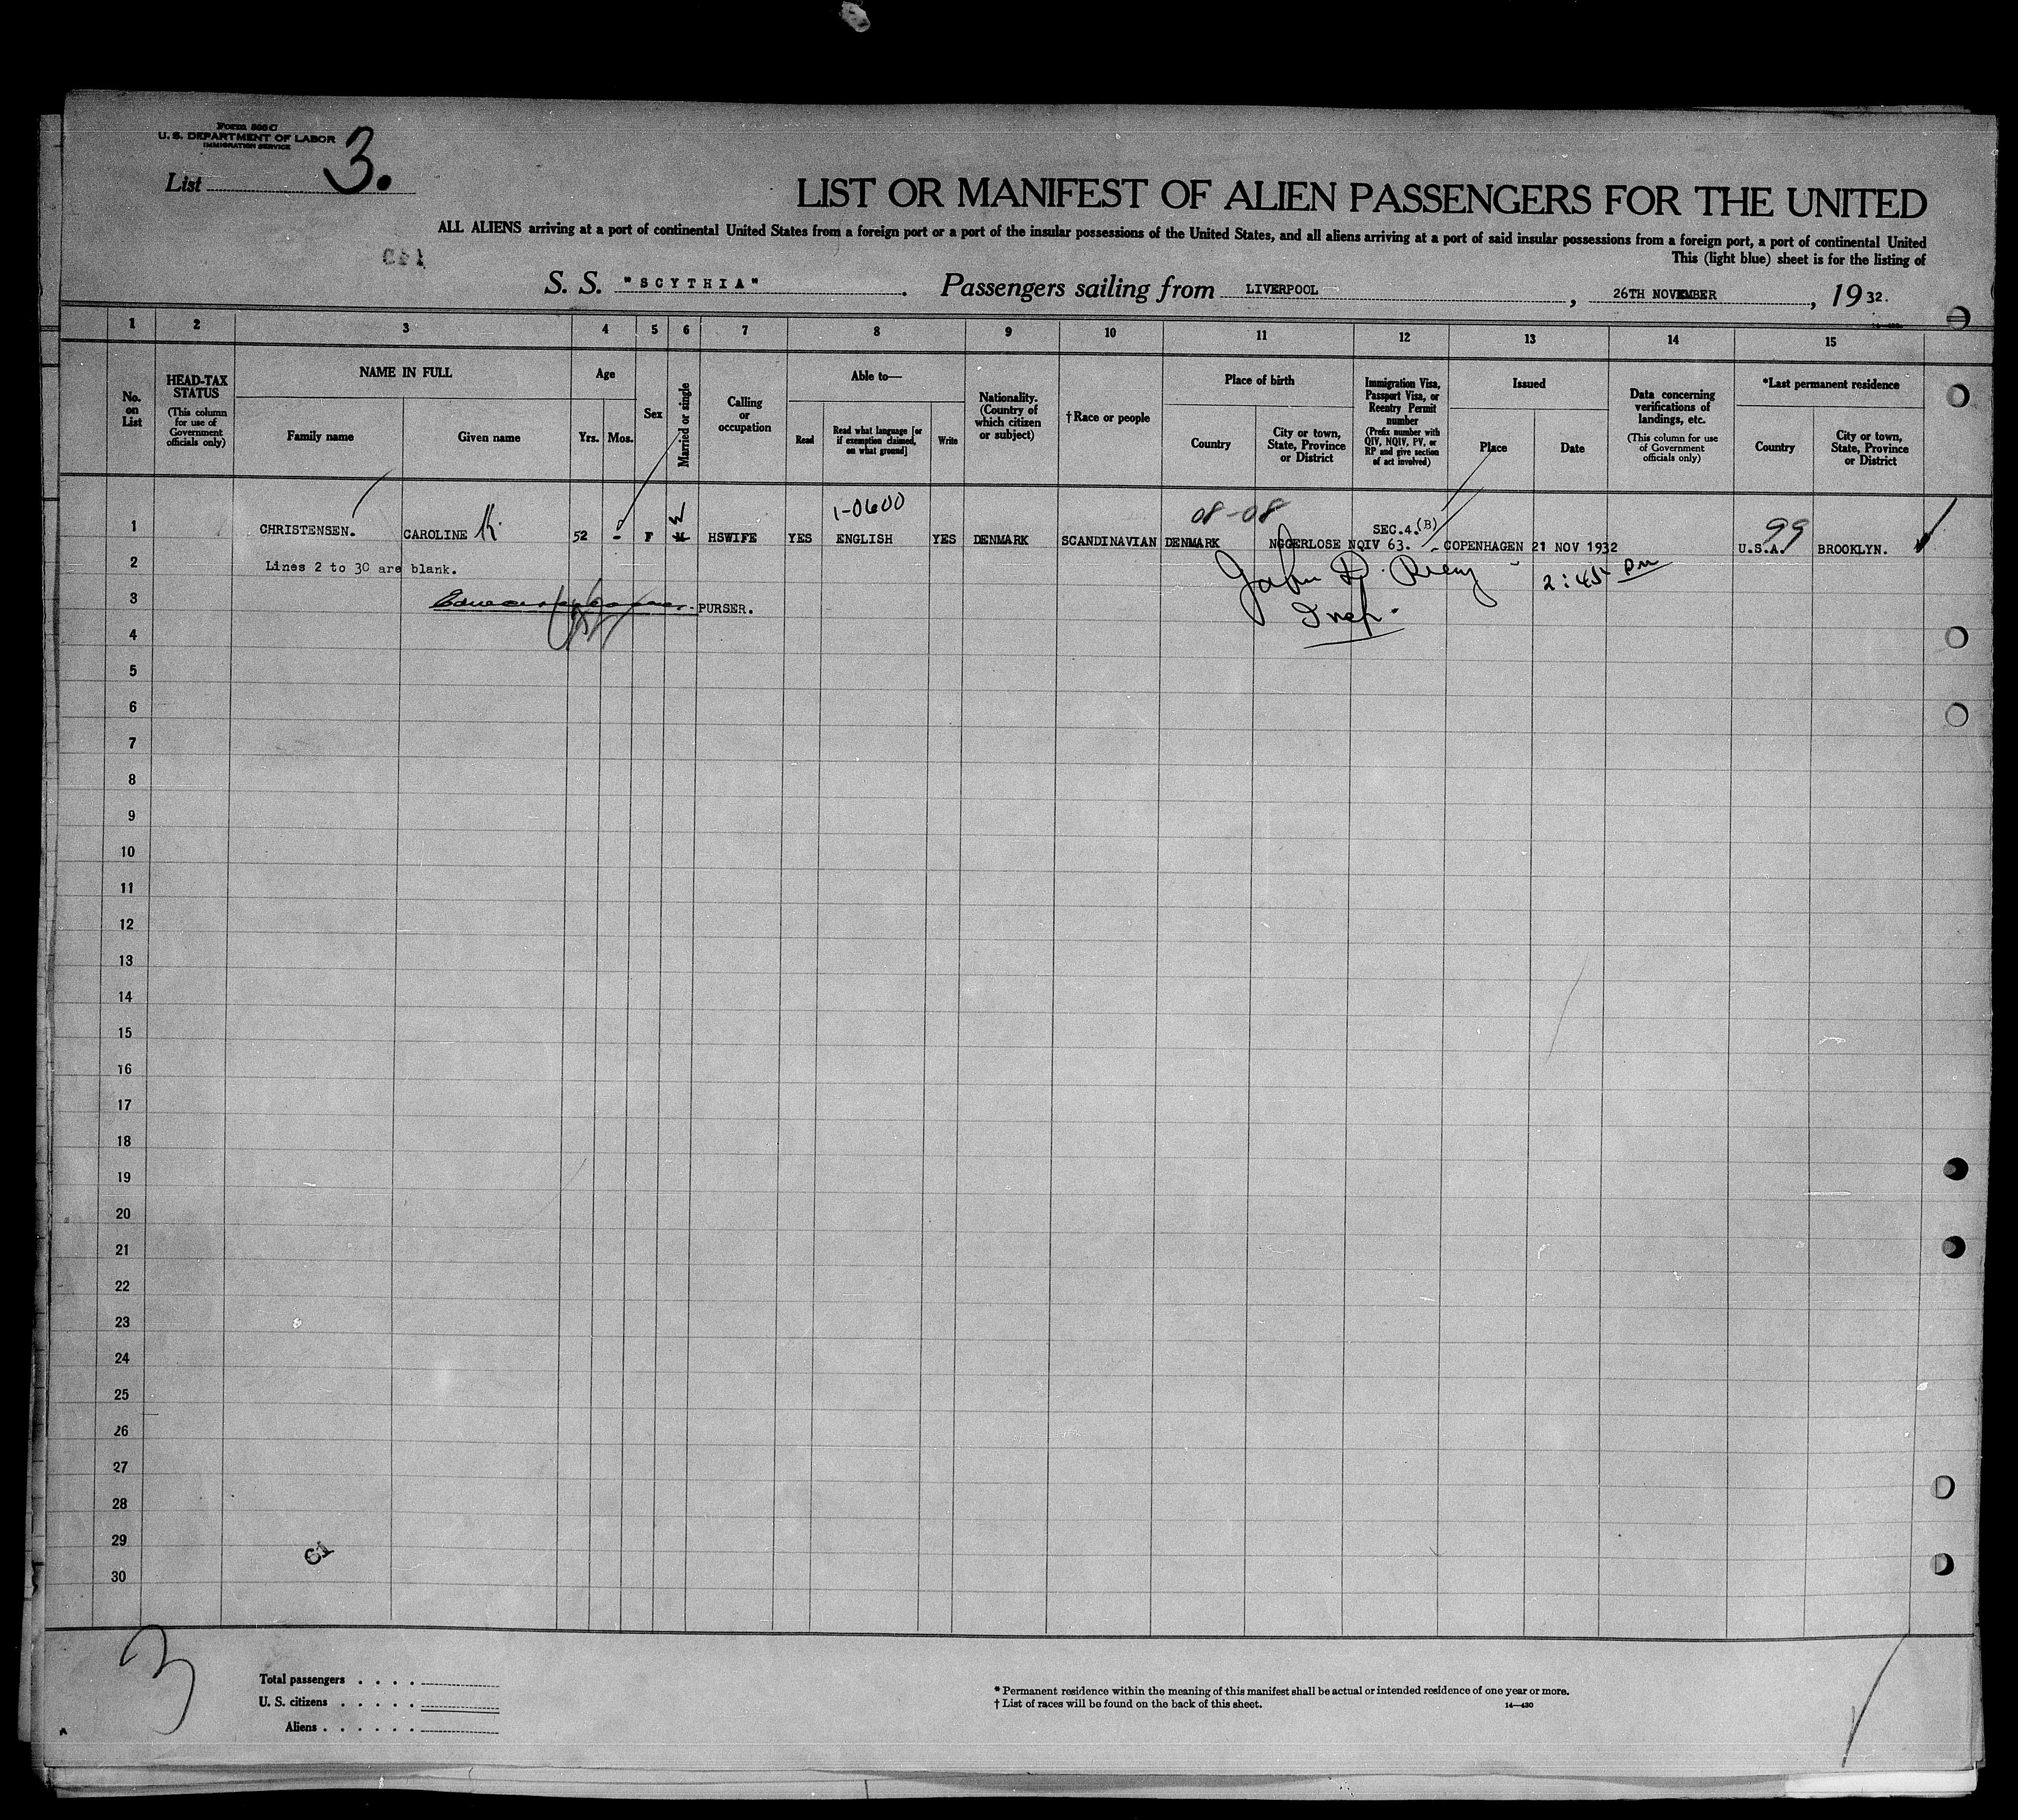 Form 500 C
U. S. DEPARTMENT OF LABOR
IMMIGRATION SERVICE
List 3.
LIST OR MANIFEST OF ALIEN PASSENGERS FOR THE UNITED
ALL ALIENS arriving at a port of continental United States from a foreign port or a port of the insular possessions of the United States, and all aliens arriving at a port of said insular possessions from a foreign port, a port of continental United
This (light blue) sheet is for the listing of
S. S. "SCYTHIA". Passengers sailing from LIVERPOOL, 26TH NOVEMBER, 1932.
1 2 3 4 5 6 7 8 9 10 11 12 13 14 15
No. on List
HEAD-TAX STATUS
(This column for use of Government officials only)
NAME IN FULL
Family name
Given name
Age
Yrs. Mos.
Sex
Married or single
Calling or occupation
Able to—
Read
Read what language [or if exemption claimed, on what ground]
Write
Nationality. (Country of which citizen or subject)
†Race or people
Place of birth
Country
City or town, State, Province or District
Immigration Visa, Passport Visa, or Reentry Permit number
(Prefix number with QIV, NQIV, PV, or RP and give section of act involved)
Issued
Place
Date
Data concerning verifications of landings, etc.
(This column for use of Government officials only)
*Last permanent residence
Country
City or town, State, Province or District
1-0600 08-08 SEC.4.(B) 99
1 CHRISTENSEN. CAROLINE K. 52 - F M HSWIFE YES ENGLISH YES DENMARK SCANDINAVIAN DENMARK NGGERLOSE NQIV 63. - COPENHAGEN 21 NOV 1932 U.S.A. BROOKLYN.
2 Lines 2 to 30 are blank. 2:45 PM
3 PURSER. John Insp.
4
5
6
7
8
9
10
11
12
13
14
15
16
17
18
19
20
21
22
23
24
25
26
27
28
29
30
61
3
Total passengers . . . .
U. S. citizens . . . . .
Aliens . . . . . .
* Permanent residence within the meaning of this manifest shall be actual or intended residence of one year or more.
† List of races will be found on the back of this sheet. 14—430